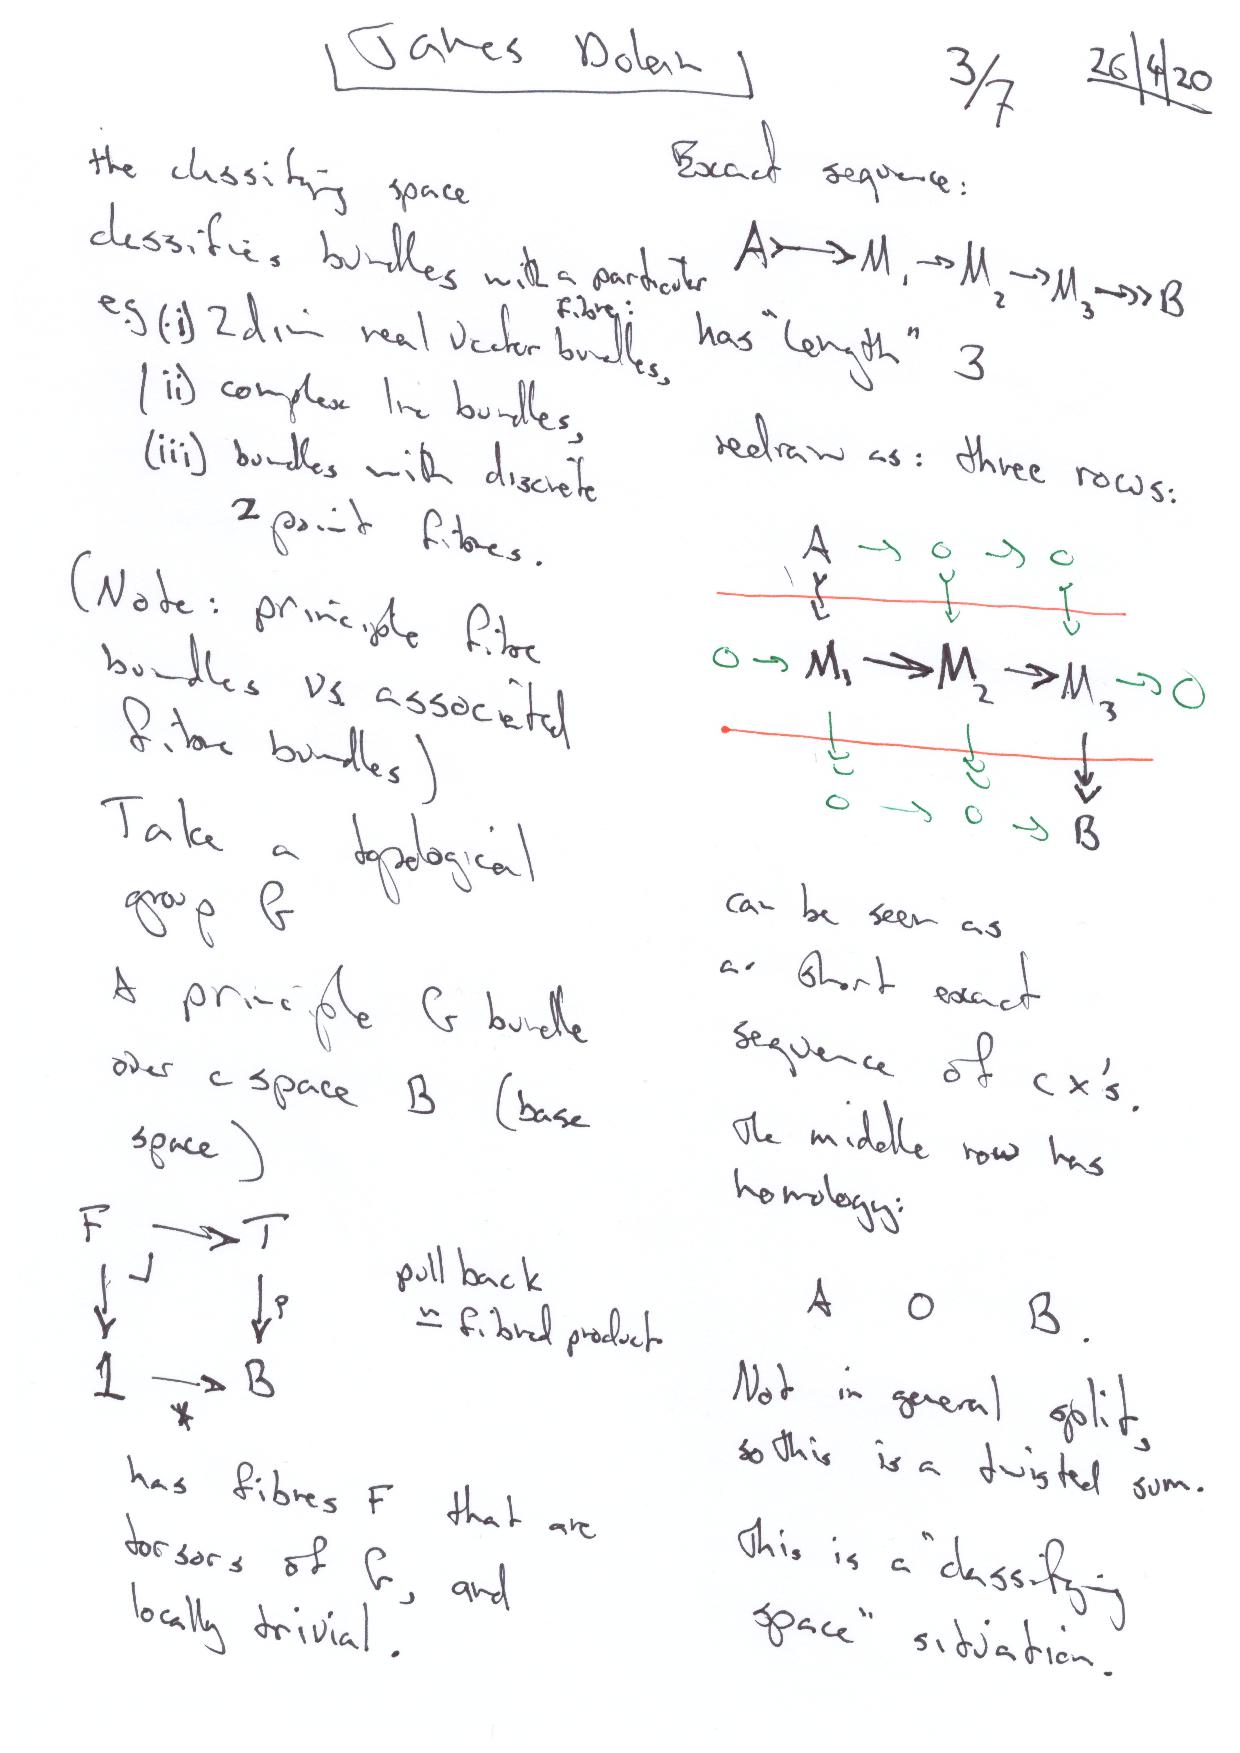 James Dolan
3/7 26/4/20
the classifying space
classifies bundles with a particular
fibre:
eg (i) 2 dim real vector bundles,
(ii) complex line bundles,
(iii) bundles with discrete
2 point fibres.
(Note: principle fibre
bundles vs associated
fibre bundles)
Take a topological
group G
A principle G bundle
over a space B (base
space)
F → T
↓ ⌟ ↓ p
1 → B
*
pull back
= fibred product
has fibres F that are
torsors of G, and
locally trivial.
Exact sequence:
A ↣ M₁ → M₂ → M₃ ↠ B
has "length" 3
redraw as: three rows:
A → 0 → 0
0 → M₁ → M₂ → M₃ → 0
0 → 0 → B
can be seen as
a short exact
sequence of cx's.
The middle row has
homology:
A 0 B.
Not in general split,
so this is a twisted sum.
This is a "classifying
space" situation.